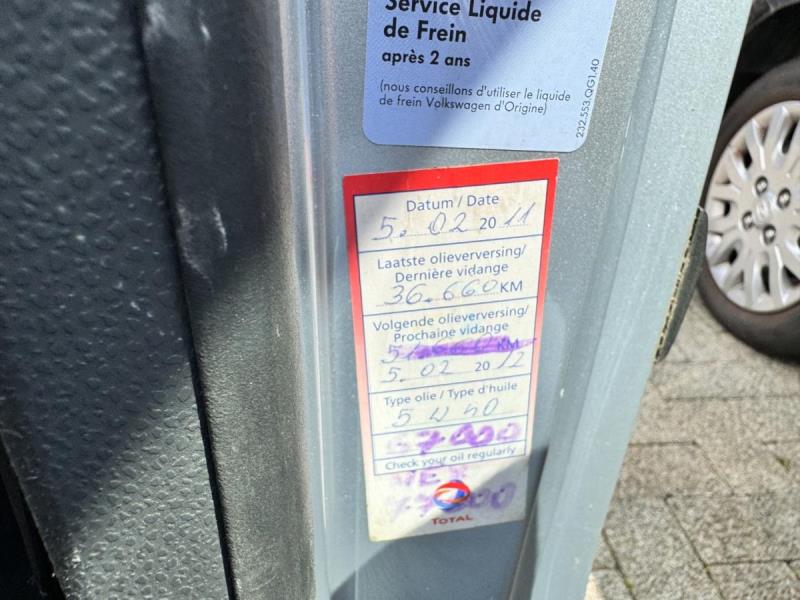 Service Liquide
de Frein
après 2 ans
(nous conseillons d'utiliser le liquide
de frein Volkswagen d'Origine)
232.553.QG1.40
Datum / Date
5. 02 20 11
Laatste olieverversing/
Dernière vidange
36.660 KM
Volgende olieverversing/
Prochaine vidange
KM
5. 02 20 12
Type olie / Type d'huile
5 W 40
57000
Check your oil regularly
TOTAL